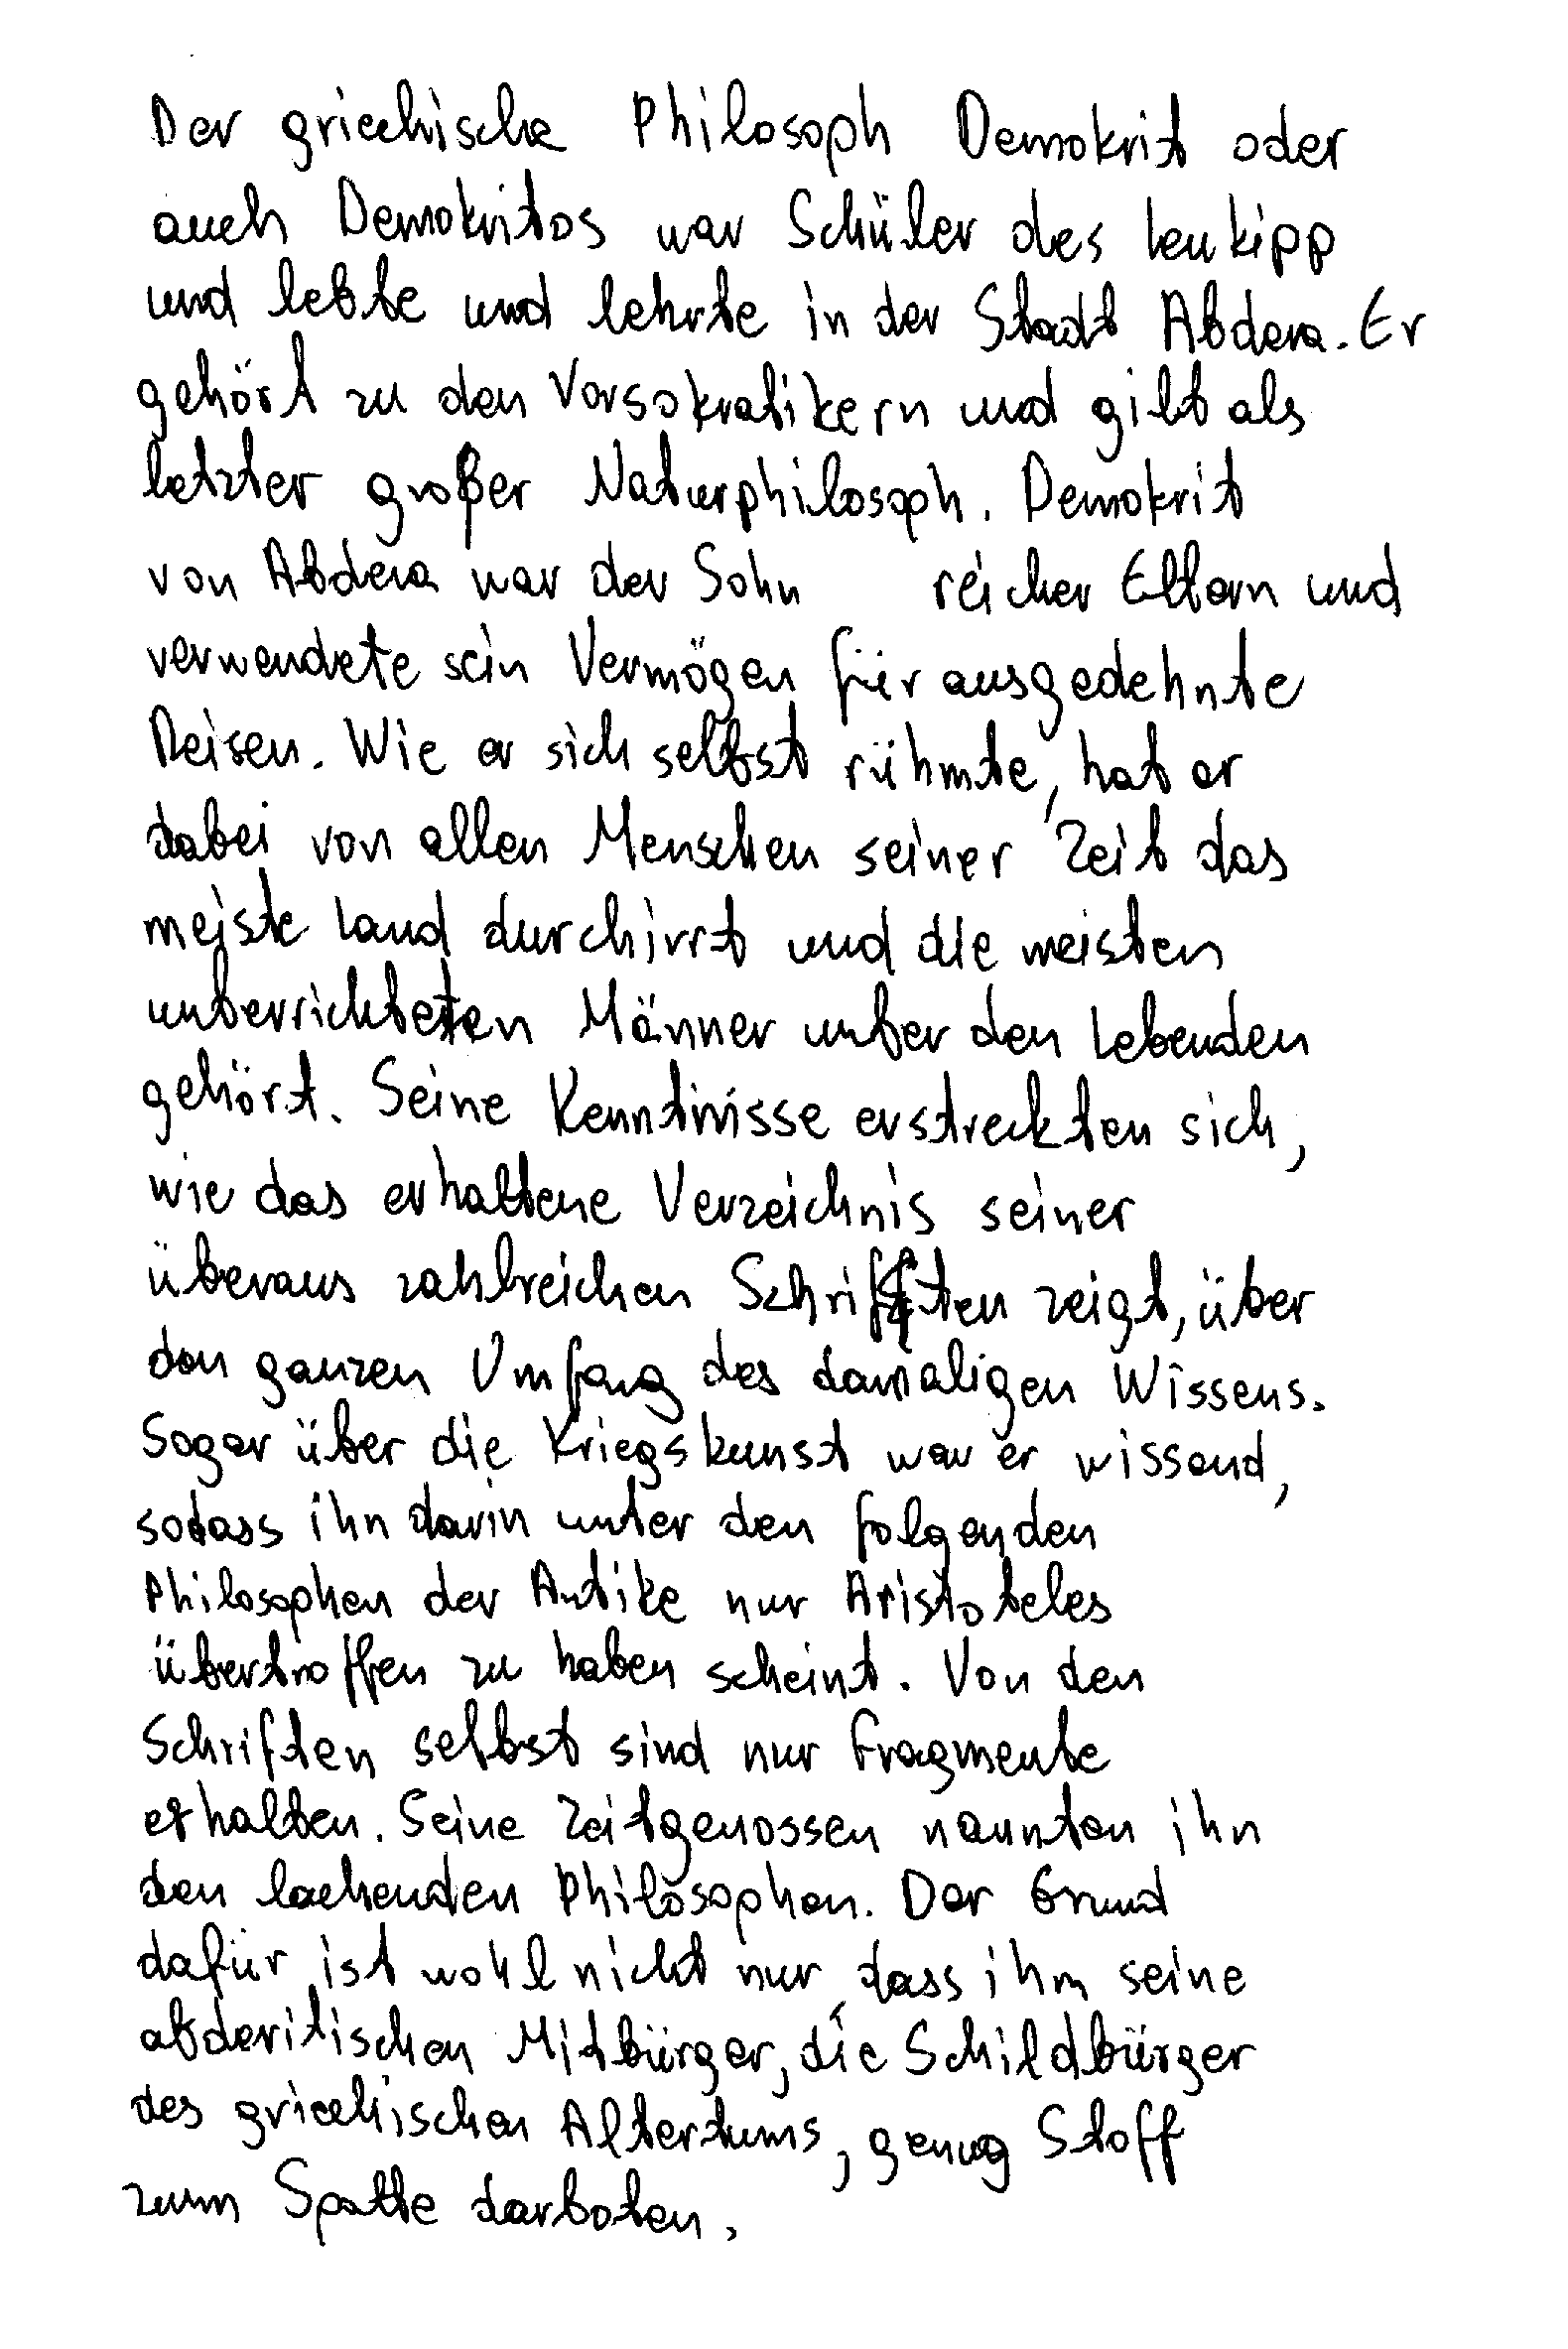 Der griechische Philosoph Demokrit oder
auch Demokritos war Schüler des Leukipp
und lebte und lehrte in der Stadt Abdera. Er
gehört zu den Vorsokratikern und gilt als
letzter großer Naturphilosoph. Demokrit
von Abdera war der Sohn reicher Eltern und
verwendete sein Vermögen für ausgedehnte
Reisen. Wie er sich selbst rühmte, hat er
dabei von allen Menschen seiner Zeit das
meiste Land durchirrt und die meisten
unterrichteten Männer unter den Lebenden
gehört. Seine Kenntnisse erstreckten sich,
wie das erhaltene Verzeichnis seiner
überaus zahlreichen Schriften zeigt, über
den ganzen Umfang des damaligen Wissens.
Sogar über die Kriegskunst war er wissend,
sodass ihn darin unter den folgenden
Philosophen der Antike nur Aristoteles
übertroffen zu haben scheint. Von den
Schriften selbst sind nur Fragmente
erhalten. Seine Zeitgenossen nannten ihn
den lachenden Philosophen. Der Grund
dafür ist wohl nicht nur, dass ihm seine
abderitischen Mitbürger, die Schildbürger
des griechischen Altertums, genug Stoff
zum Spotte darboten.